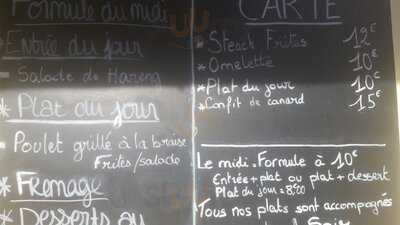 Formule du midi
Entrée du jour
- Salade de Hareng
* Plat du jour
- Poulet grillé à la braise
Frites/salade
* Fromage
* Desserts au
CARTE
* Steack Frites 12€
* Omelette 10€
* Plat du jour 10€
* Confit de canard 15€
Le midi. Formule à 10€
Entrée + plat ou plat + dessert
Plat du jour = 8€00
Tous nos plats sont accompagnés